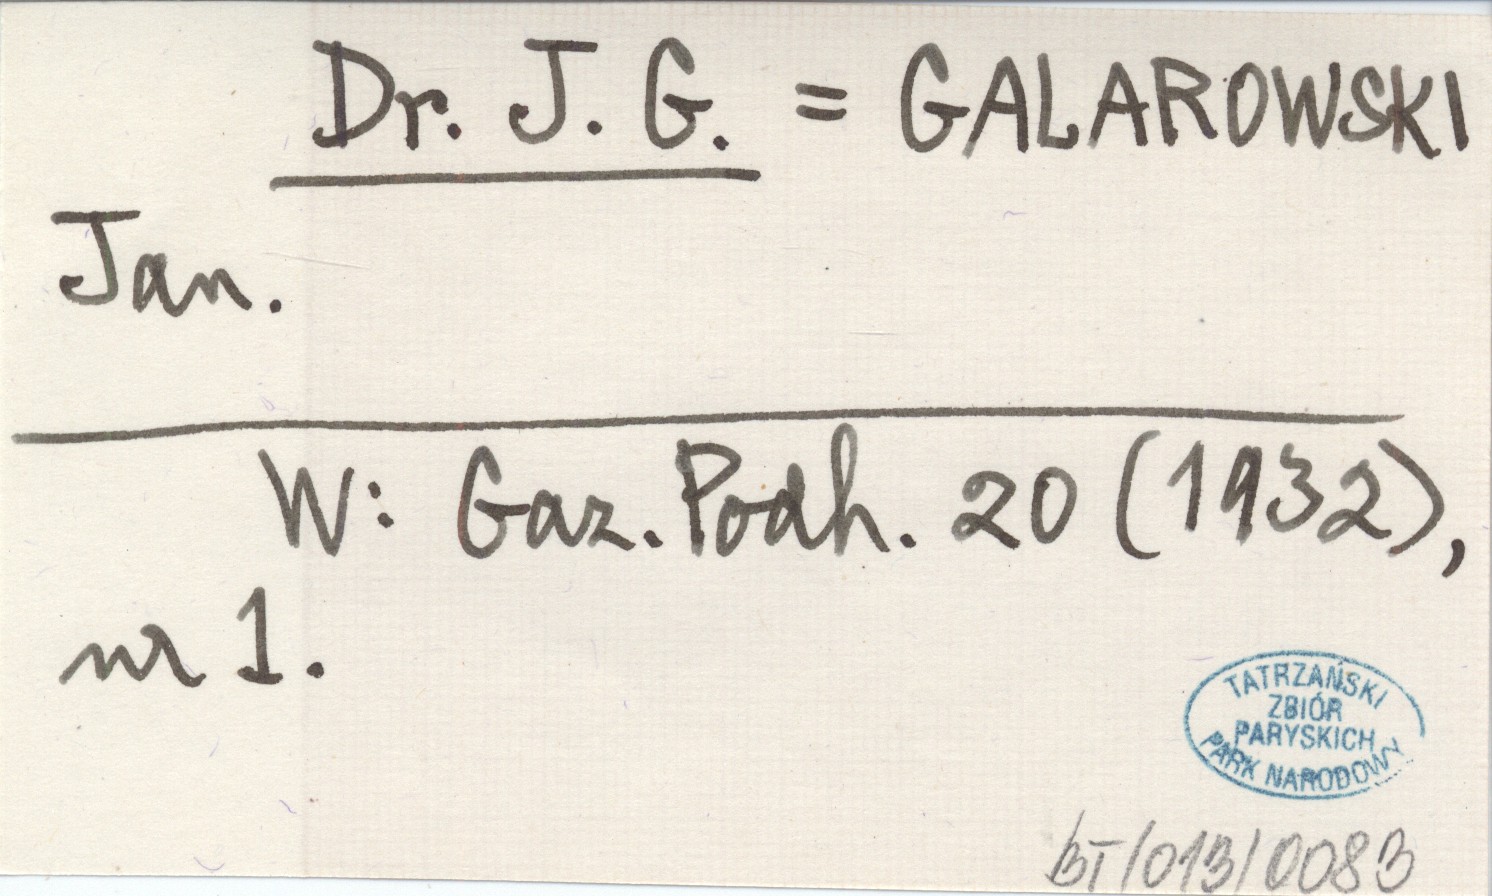 Dr. J. G. = GALAROWSKI
Jan.
W: Gaz. Podh. 20 (1932),
nr 1.
TATRZAŃSKI
ZBIÓR
PARYSKICH
PARK NARODOWY
BT/013/0083